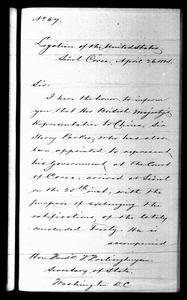 No. 67.
Legation of the United States,
Seoul, Corea, April 26, 1884.
Sir:
I have the honor to inform
you that Her British Majesty's
Representative to China, Sir
Harry Parkes, who has also
been appointed to represent
his Government at the Court
of Corea, arrived at Seoul
on the inst, with the
purpose of exchanging the
ratifications, of the lately
concluded Treaty. He is
accompanied
Hon. Fred'k T. Frelinghuysen
Secretary of State,
Washington D.C.